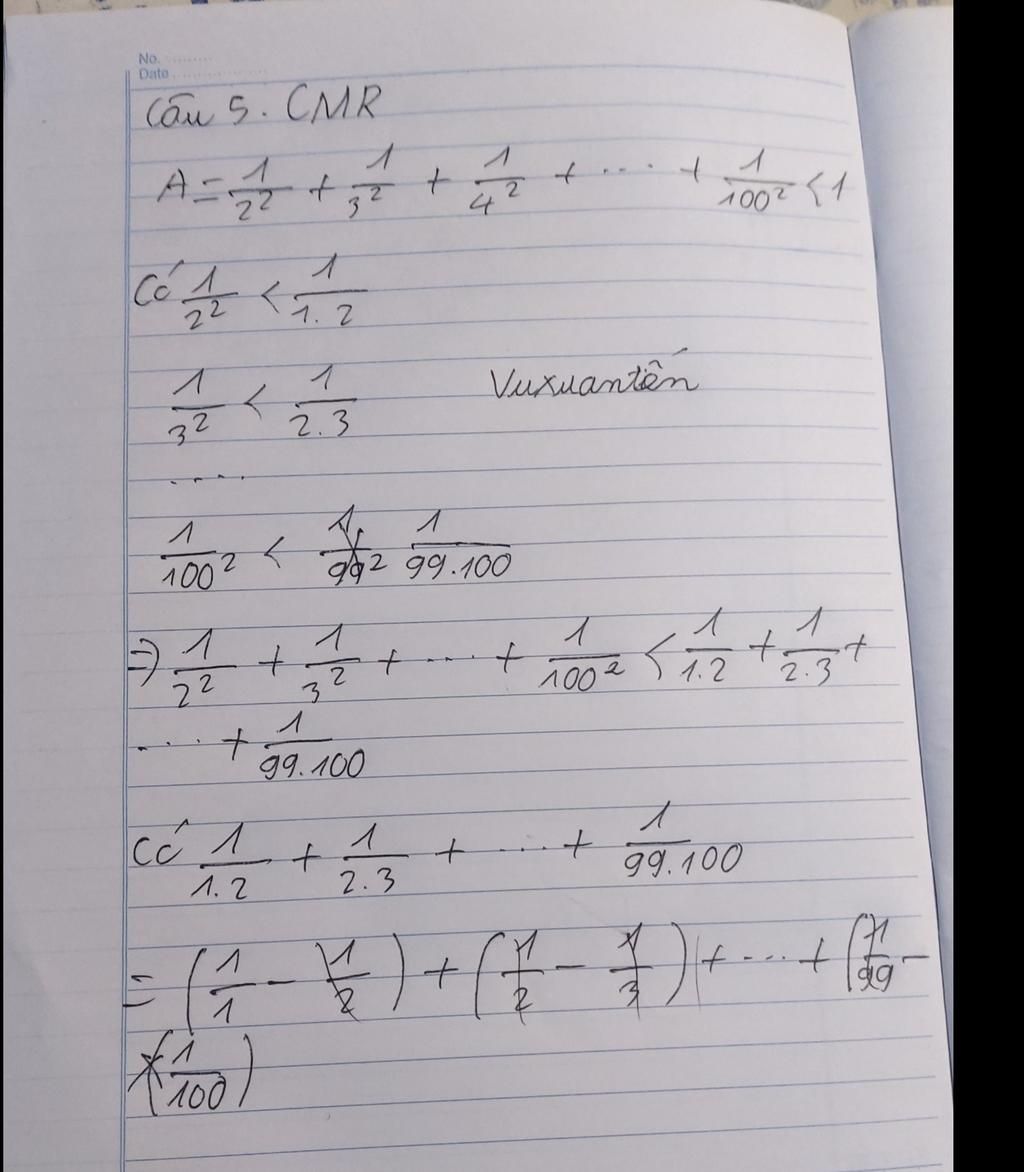 No. ..........
Date ....................
Câu 5. CMR
A = 1/2² + 1/3² + 1/4² + .... + 1/100² < 1
Có 1/2² < 1/1.2
1/3² < 1/2.3
Vuxuantến
.....
1/100² < 1/99² 1/99.100
=> 1/2² + 1/3² + .... + 1/100² < 1/1.2 + 1/2.3 +
.... + 1/99.100
Có 1/1.2 + 1/2.3 + .... + 1/99.100
= (1/1 - 1/2) + (1/2 - 1/3) + .... + (1/99 -
1/100)